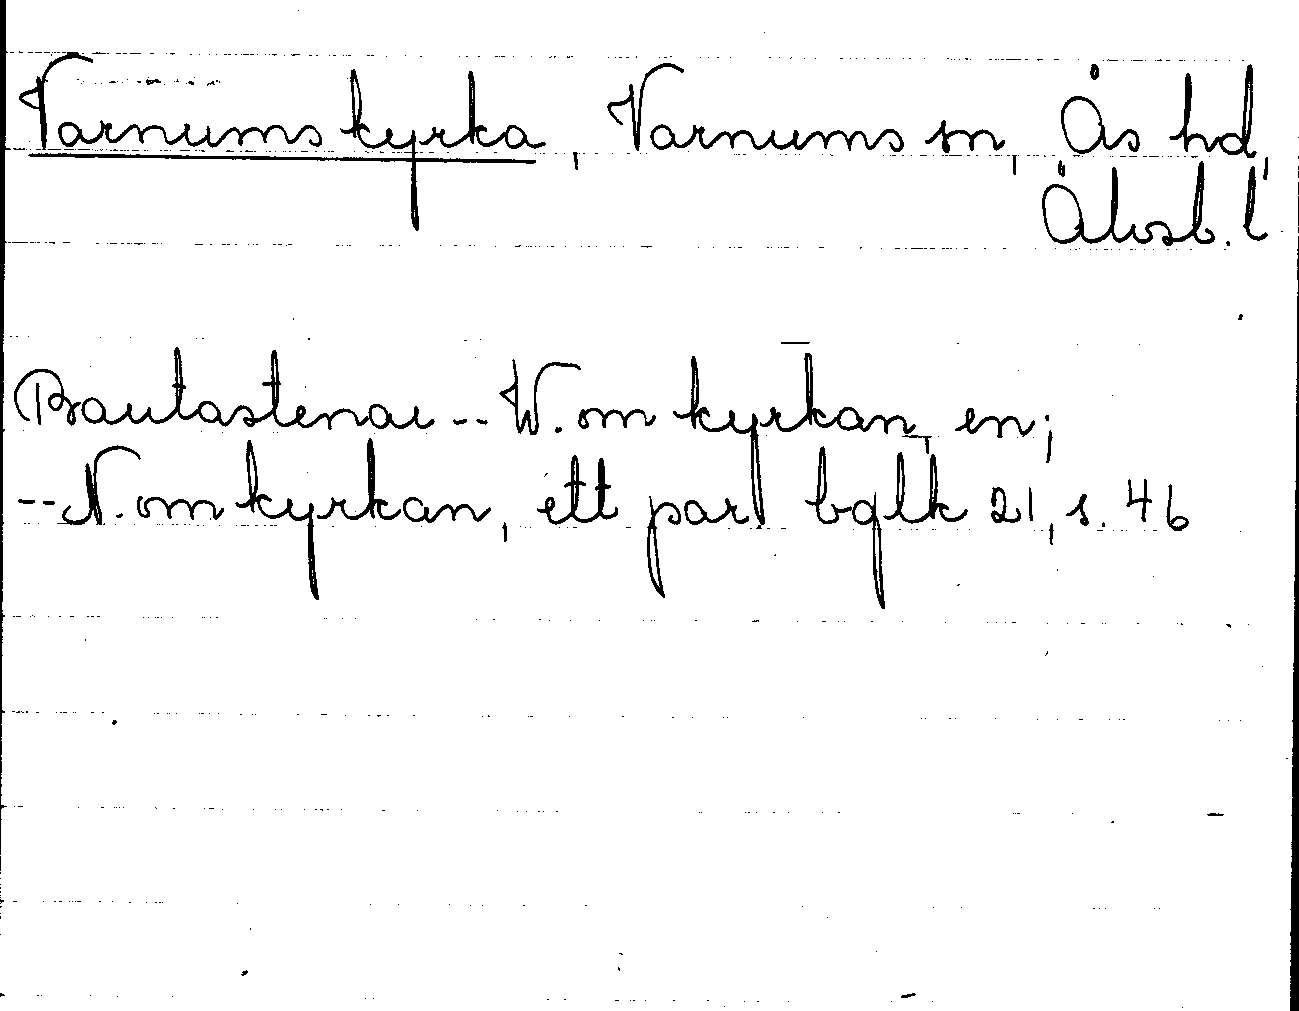 Varnums kyrka, Varnums sn, Ås hd,
Älvsb. l
Bautastenar -- W. om kyrkan, en;
-- N. om kyrkan, ett par. bqlk 21, s. 46